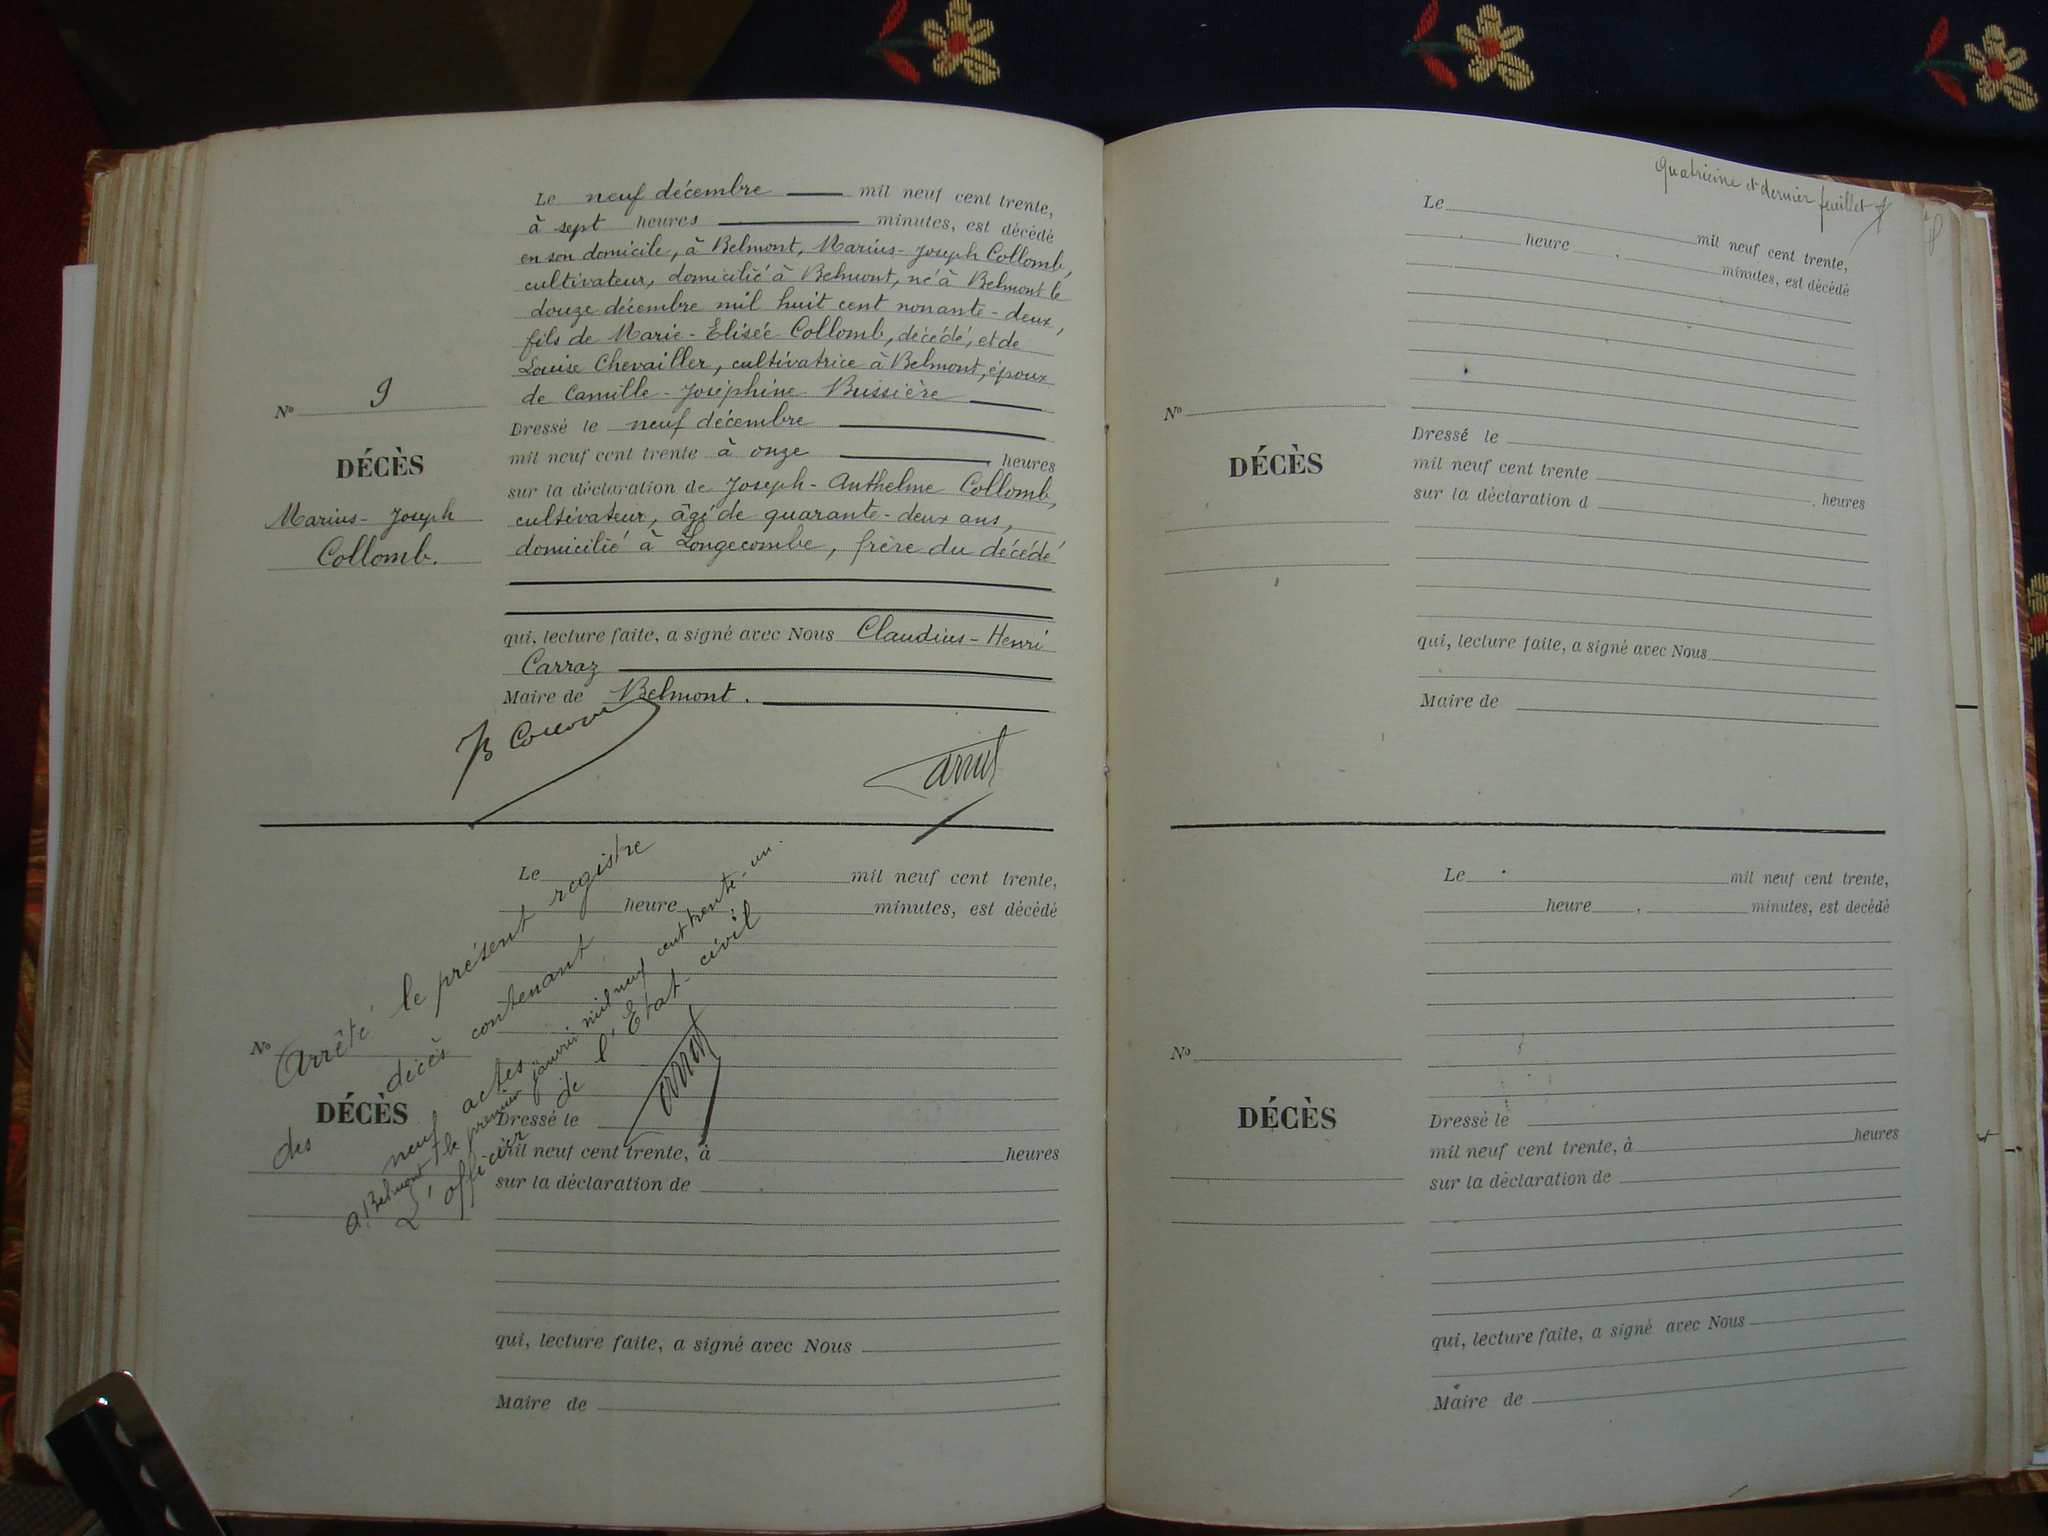 Le neuf décembre mil neuf cent trente,
à sept heures minutes, est décédé
en son domicile, à Belmont, Marius-Joseph Collomb,
cultivateur, domicilié à Belmont, né à Belmont le
douze décembre mil huit cent nonante-deux,
fils de Marie-Elisée Collomb, décédé, et de
Louise Chevailler, cultivatrice à Belmont, époux
de Camille-Joséphine Buissière
Nº 9
DÉCÈS
Marius-Joseph
Collomb.
Dressé le neuf décembre
mil neuf cent trente à onze heures
sur la déclaration de Joseph-Anthelme Collomb,
cultivateur, âgé de quarante-deux ans,
domicilié à Longecombe, frère du décédé
qui, lecture faite, a signé avec Nous Claudius-Henri
Carraz
Maire de Belmont.
Le mil neuf cent trente,
heure minutes, est décédé
Nº
DÉCÈS
Dressé le
mil neuf cent trente, à heures
sur la déclaration de
qui, lecture faite, a signé avec Nous
Maire de
Arrêté le présent registre
des décès contenant
neuf actes
A Belmont, le premier janvier mil neuf cent trente-un.
L'officier de l'Etat-civil
dernier feuillet
Le mil neuf cent trente,
heure minutes, est décédé
Nº
DÉCÈS
Dressé le
mil neuf cent trente heures
sur la déclaration d
qui, lecture faite, a signé avec Nous
Maire de
Le mil neuf cent trente,
heure minutes, est décédé
Nº
DÉCÈS
Dressé le
mil neuf cent trente, à heures
sur la déclaration de
qui, lecture faite, a signé avec Nous
Maire de